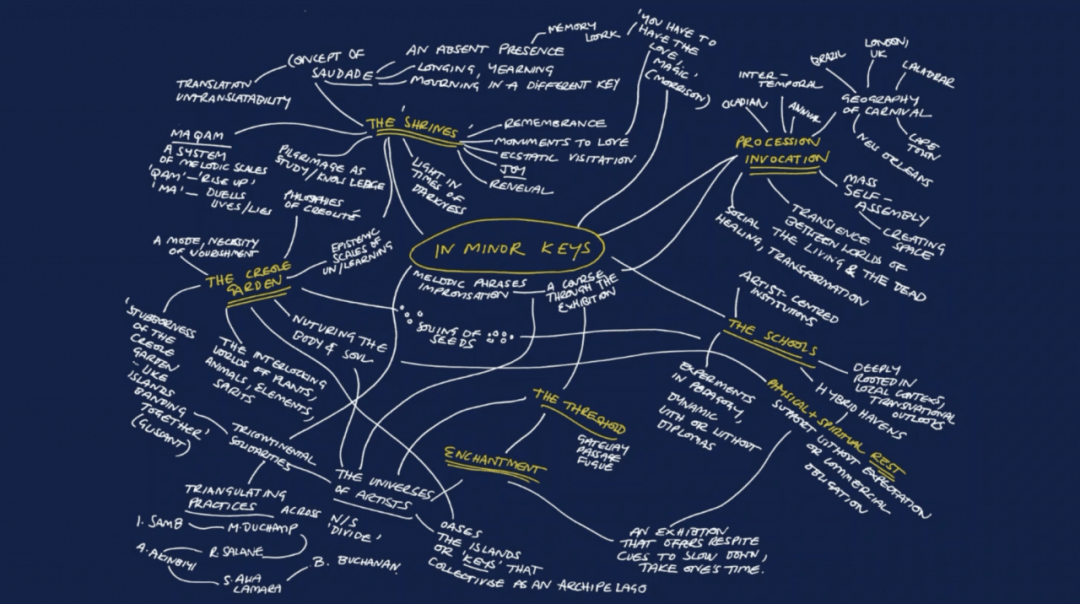 'YOU HAVE TO
HAVE THE
LOVE,
MAGIC'
(MORRISON)
MEMORY
WORK
AN ABSENT PRESENCE
CONCEPT OF
SAUDADE
LONGING, YEARNING
MOURNING IN A DIFFERENT KEY
TRANSLATION
UNTRANSLATABILITY
THE 'SHRINES'
REMEMBRANCE
MONUMENTS TO LOVE
ECSTATIC VISITATION
JOY
RENEWAL
LIGHT IN
TIMES OF
DARKNESS
MAQAM
A SYSTEM
OF MELODIC SCALES
'QAM' – 'RISE UP'
'MA' – DWELLS
LIVES/LIES
PILGRIMAGE AS
STUDY/KNOWLEDGE
PHILOSOPHIES
OF CREOLITÉ
EPISTEMIC
SCALES OF
UN/LEARNING
A MODE, NECESSITY
OF NOURISHMENT
THE CREOLE
GARDEN
BRAZIL
LONDON,
UK
INTER-
TEMPORAL
OUADIAN
ANNUAL
GEOGRAPHY
OF CARNIVAL
CAPE
TOWN
NEW ORLEANS
PROCESSION
INVOCATION
MASS
SELF-
ASSEMBLY
CREATING
SPACE
TRANSIENCE
BETWEEN WORLDS OF
THE LIVING & THE DEAD
SOCIAL
HEALING, TRANSFORMATION
IN MINOR KEYS
MELODIC PHRASES
IMPROVISATION
A COURSE
THROUGH THE
EXHIBITION
SOWING OF
SEEDS
NUTURING THE
BODY & SOUL
THE INTERLOCKING
WORLDS OF PLANTS,
ANIMALS, ELEMENTS,
SPIRITS
'STUBBORNESS
OF THE
CREOLE
GARDEN
LIKE
ISLANDS
BANDING
TOGETHER'
(GLISSANT)
ARTIST-CENTRED
INSTITUTIONS
THE SCHOOLS
DEEPLY
ROOTED IN
LOCAL CONTEXTS,
TRANSNATIONAL
OUTLOOKS
HYBRID HAVENS
EXPERIMENTS
IN PARAGOGY,
DYNAMIC
WITH OR WITHOUT
DIPLOMAS
PHYSICAL + SPIRITUAL REST
SUPPORT WITHOUT EXPECTATION
OR COMMERCIAL
OBLIGATION
THE THRESHOLD
GATEWAY
PASSAGE
FUGUE
ENCHANTMENT
TRICONTINENTAL
SOLIDARITIES
THE UNIVERSES
OF ARTISTS
TRIANGULATING
PRACTICES ACROSS
N/S
'DIVIDE'
I. SAMB
M. DUCHAMP
A. AKINBIYI
R. SALANE
B. BUCHANAN
OASES
THE ISLANDS
OR 'KEYS' THAT
COLLECTIVISE AS AN ARCHIPELAGO
AN EXHIBITION
THAT OFFERS RESPITE
CUES TO SLOW DOWN,
TAKE ONE'S TIME.